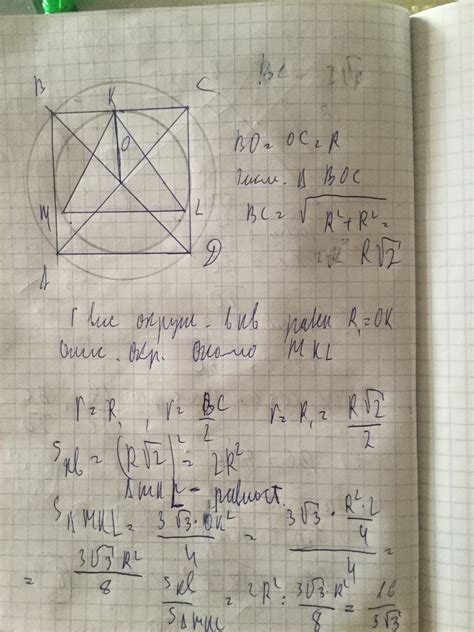 BC = 2√
B
K
C
BO = OC = R
O
Δ BOC
M
L
BC = √R²+R² =
= R√2
A
D
r вис окруж. в кв равен R₁=OK
Опис. окр. около MKL
r = R₁, r = BC/2 r = R₁ = R√2/2
Sкв = (R√2)² = 2R²
ΔMKL – равност.
SΔMKL = 3√3·OK²/4 = 3√3·R²·2/4/4 =
= 3√3 R²/8
Sкв/SΔMKL = 2R² : 3√3·R²/8 = 16/3√3